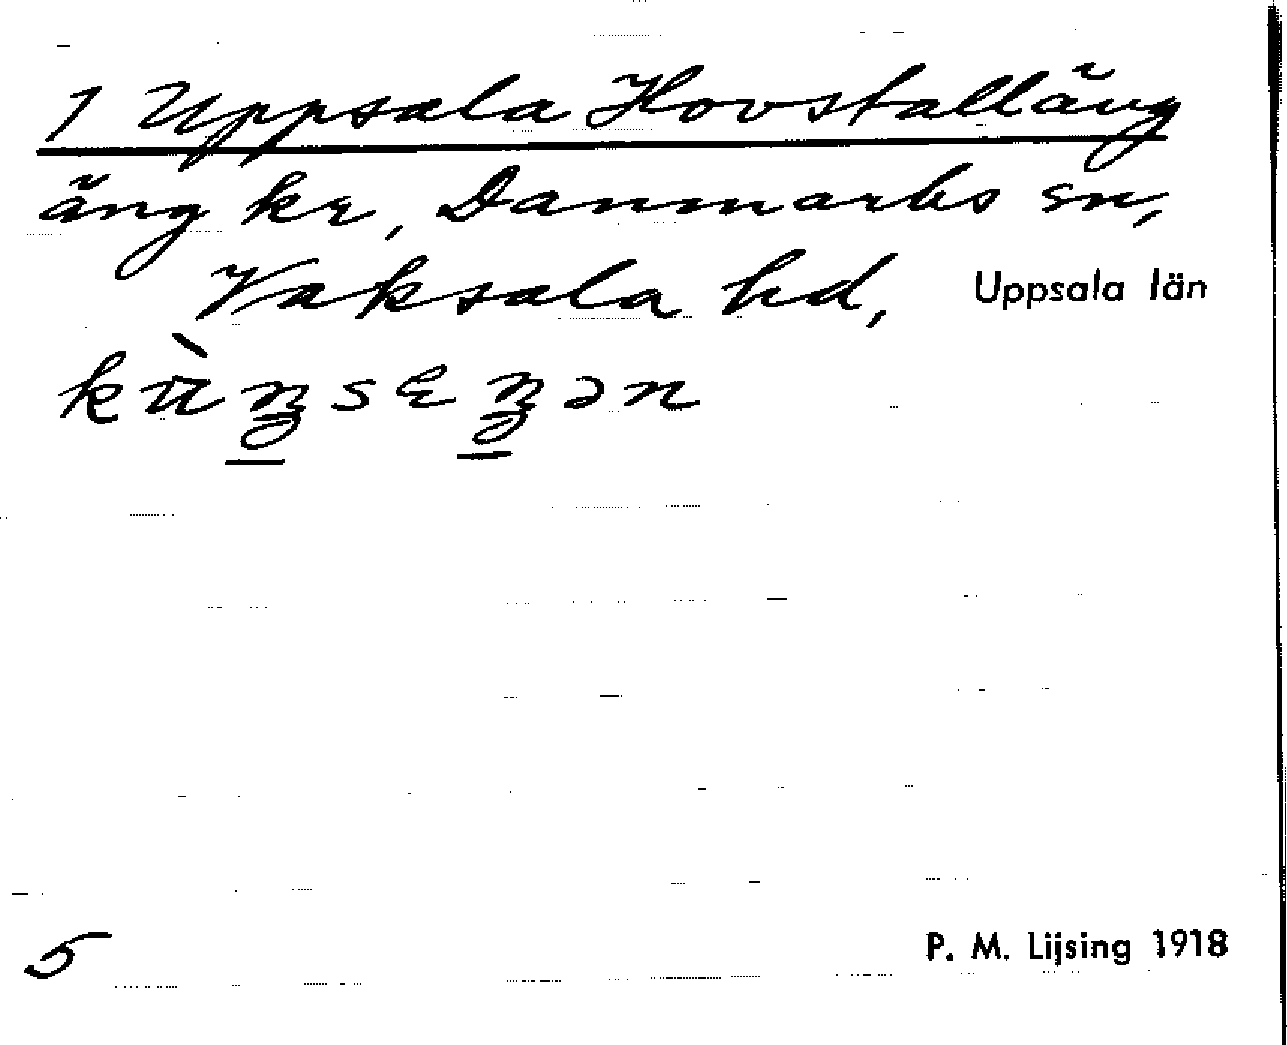 1 Uppsala Hovstalläng
äng kr, Danmarks sn,
Vaksala hd, Uppsala län
5
P. M. Lijsing 1918